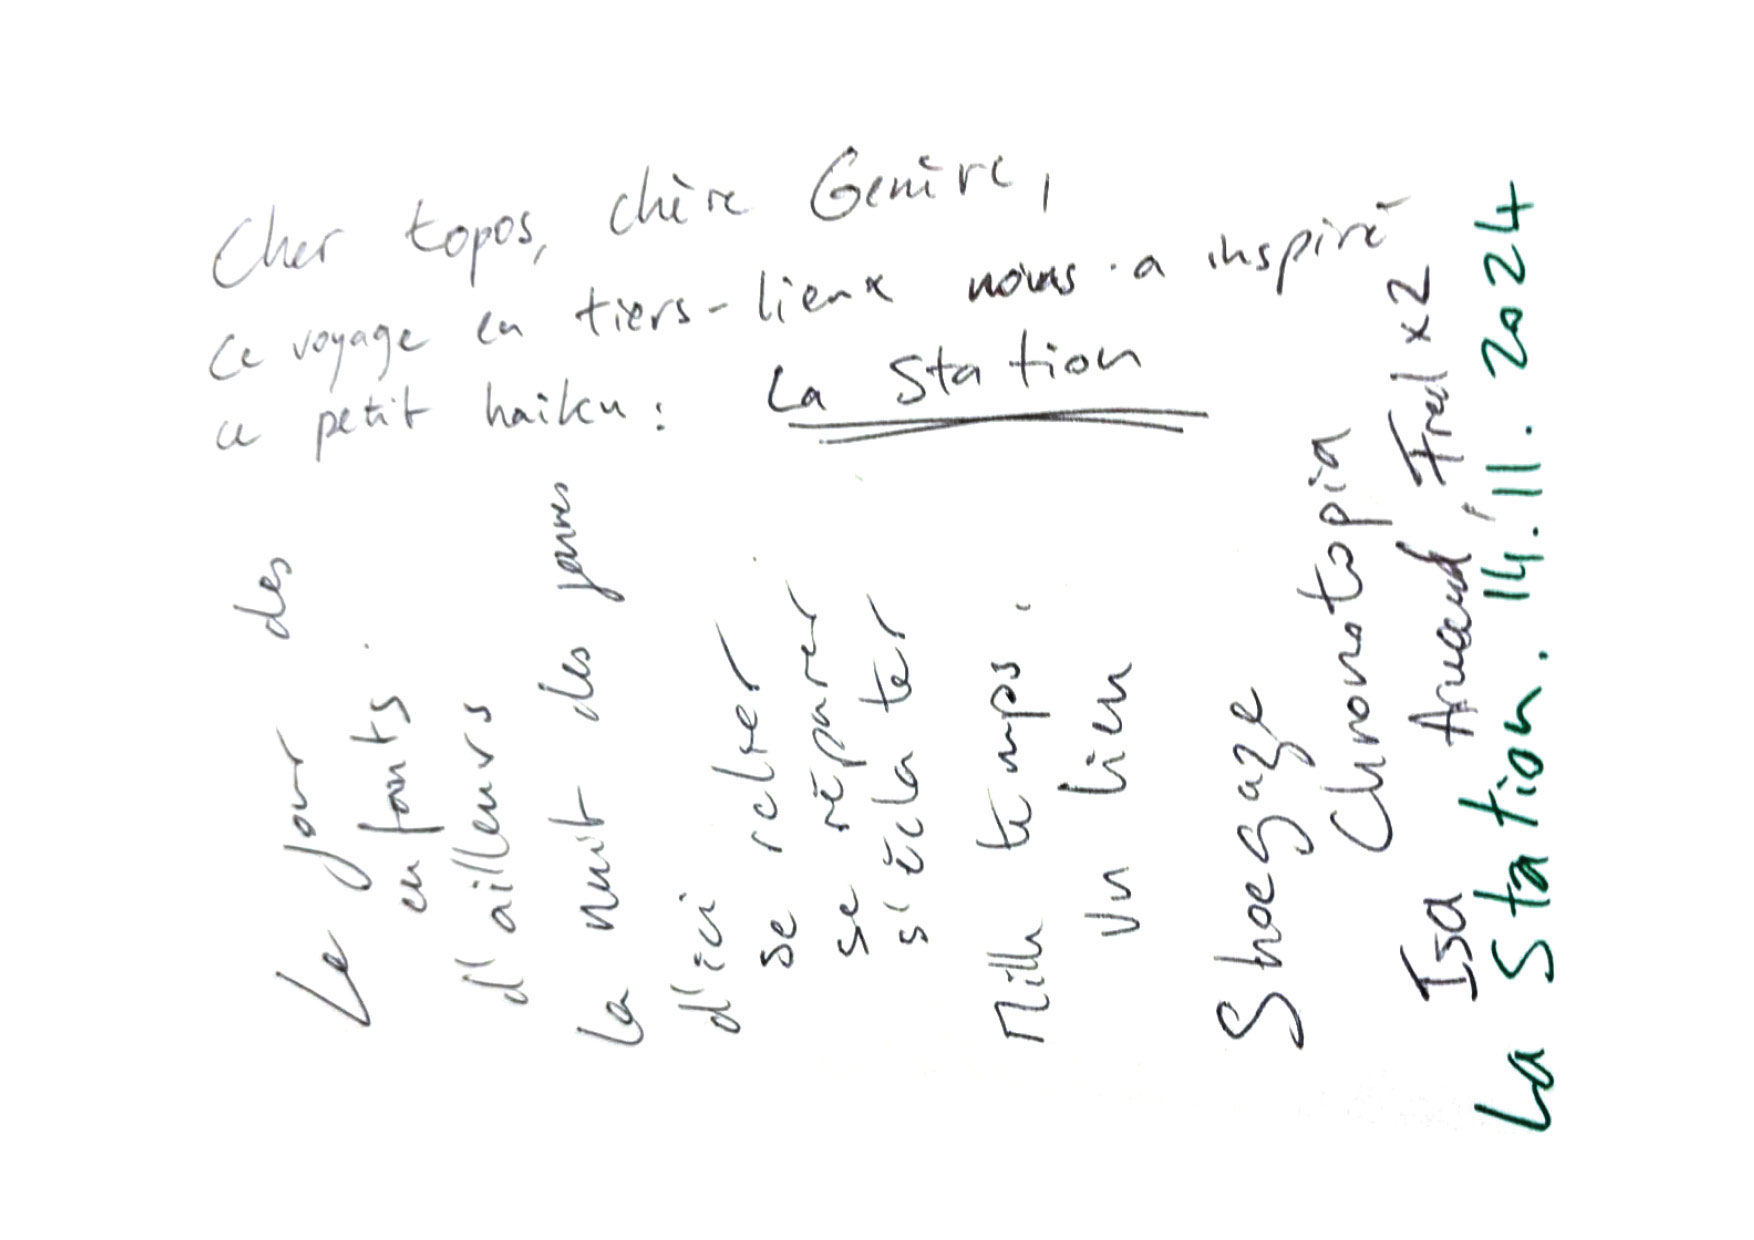 Cher topos, chère Genève,
ce voyage en tiers-lieux nous a inspiré
ce petit haiku : La Station
Le jour des
enfants
d'ailleurs
La nuit des jeunes
d'ici
se relier
se réparer
s'éclater
Mille temps.
Un lieu
Shoegaze
Chronotopia
Isa Arnaud Fred x2
La Station. 14.11.2024